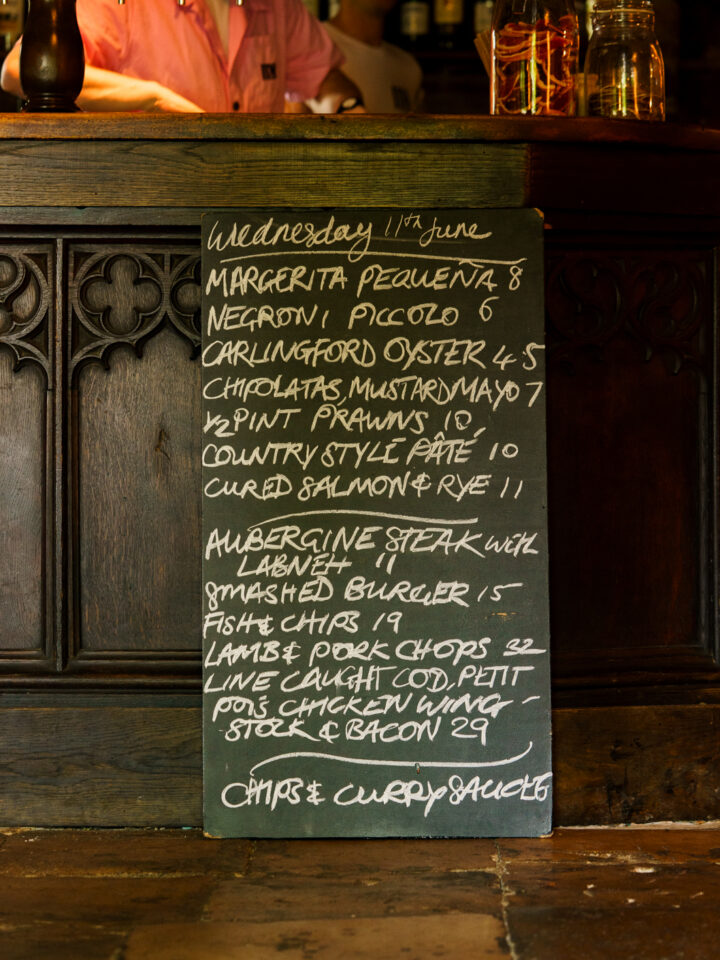 Wednesday 11th June
MARGERITA PEQUEÑA 8
NEGRONI PICCOLO 6
CARLINGFORD OYSTER 4.5
CHIPOLATAS, MUSTARD MAYO 7
1/2 PINT PRAWNS 10,
COUNTRY STYLE PÂTÉ 10
CURED SALMON & RYE 11
AUBERGINE STEAK with
LABNEH 11
SMASHED BURGER 15
FISH & CHIPS 19
LAMB & PORK CHOPS 32
LINE CAUGHT COD, PETIT
POIS CHICKEN WING -
STOCK & BACON 29
CHIPS & CURRY SAUCE